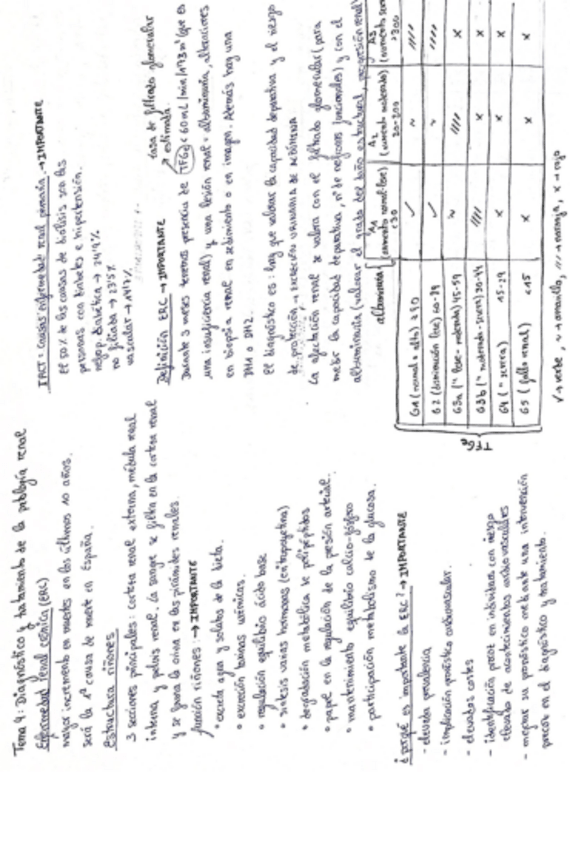 Tema 4: Diagnóstico y tratamiento de la patología renal
Enfermedad renal crónica (ERC)
mayor incremento en muertes en los últimos 10 años.
será la 1ª causa de muerte en España.
Estructura riñones
3 secciones principales: corteza renal externa, médula renal
interna y pelvis renal. La sangre se filtra en la corteza renal
y se forma la orina en las pirámides renales.
función riñones: → IMPORTANTE
• excreta agua y solutos de la dieta.
• excreción toxinas urémicas.
• regulación equilibrio ácido base
• síntesis varias hormonas (eritropoyetina)
• degradación metabólica de polipéptidos
• papel en la regulación de la presión arterial.
• mantenimiento equilibrio calcio-fósforo
• participación metabolismo de la glucosa.
¿porqué es importante la ERC? → IMPORTANTE
- elevada prevalencia
- implicación pronóstico cardiovascular.
- elevados costes
- identificación precoz en individuos con riesgo
elevado de acontecimientos cardiovasculares
- mejorar su pronóstico mediante una intervención
precoz en el diagnóstico y tratamiento.
causas enfermedad renal primaria → IMPORTANTE
El 50% de las causas de diálisis son las
personas con diabetes e hipertensión.
nefrop. diabética → 24'9%
no filiada → 23'5%
vascular →
Definición ERC → IMPORTANTE
tasa de filtrado glomerular
estimada.
Durante 3 meses tenemos presencia de TFGe < 60 mL/min/1'73 m² (que es
una insuficiencia renal) y una lesión renal = albuminuria, alteraciones
en biopsia renal, en sedimiento o en imagen. Además hay una
DM1 o DM2.
El diagnóstico es: hay que valorar la capacidad depurativa y el riesgo
de protección → EXCRECIÓN URINARIA DE ALBÚMINA
La afectación renal se valora con el filtrado glomerular (para
medir la capacidad depurativa, nº de nefronas funcionales) y con el
albuminuria (valorar el grado del daño estructural, progresión renal)
albuminuria
A1 (aumento normal-leve) <30
A2 (aumento moderado)
A3 >300
TFGe
G1 (normal o alta) ≥90 ✓ ~ ////
G2 (disminución leve) 60-89 ✓ ~ ////
G3a (" leve-moderada) 45-59 ~ //// x
G3b (" moderada-severa) 30-44 //// x x
G4 (" severa) 15-29 x x x
G5 (fallo renal) <15 x x x
✓ → verde, ~ → amarillo, /// → naranja, x → rojo